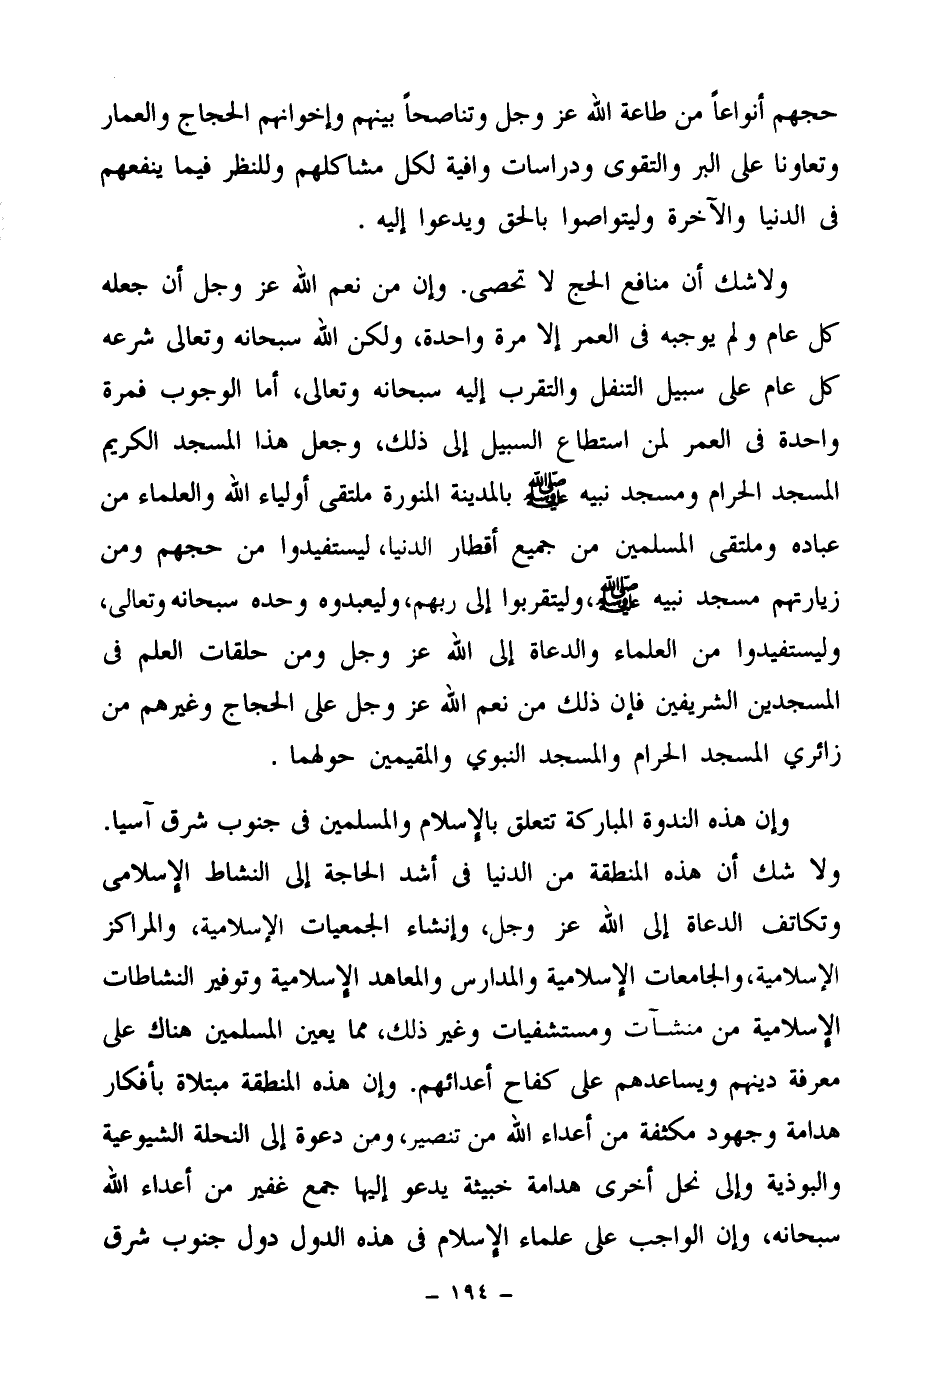 حجهم أنواعاً من طاعة الله عز وجل وتناصحاً بينهم وإخوانهم الحجاج والعمار
وتعاونا على البر والتقوى ودراسات وافية لكل مشاكلهم وللنظر فيما ينفعهم
فى الدنيا والآخرة وليتواصوا بالحق ويدعوا إليه .
ولاشك أن منافع الحج لا تحصى. وإن من نعم الله عز وجل أن جعله
كل عام ولم يوجبه فى العمر إلا مرة واحدة، ولكن الله سبحانه وتعالى شرعه
كل عام على سبيل التنفل والتقرب إليه سبحانه وتعالى، أما الوجوب فمرة
واحدة فى العمر لمن استطاع السبيل إلى ذلك، وجعل هذا المسجد الكريم
المسجد الحرام ومسجد نبيه ﷺ بالمدينة المنورة ملتقى أولياء الله والعلماء من
عباده وملتقى المسلمين من جميع أقطار الدنيا، ليستفيدوا من حجهم ومن
زيارتهم مسجد نبيه ﷺ،وليتقربوا إلى ربهم،وليعبدوه وحده سبحانه وتعالى،
وليستفيدوا من العلماء والدعاة إلى الله عز وجل ومن حلقات العلم فى
المسجدين الشريفين فإن ذلك من نعم الله عز وجل على الحجاج وغيرهم من
زائري المسجد الحرام والمسجد النبوي والمقيمين حولهما .
وإن هذه الندوة المباركة تتعلق بالإسلام والمسلمين فى جنوب شرق آسيا.
ولا شك أن هذه المنطقة من الدنيا فى أشد الحاجة إلى النشاط الإسلامى
وتكاتف الدعاة إلى الله عز وجل، وإنشاء الجمعيات الإسلامية، والمراكز
الإسلامية،والجامعات الإسلامية والمدارس والمعاهد الإسلامية وتوفير النشاطات
الإسلامية من منشآت ومستشفيات وغير ذلك، مما يعين المسلمين هناك على
معرفة دينهم ويساعدهم على كفاح أعدائهم. وإن هذه المنطقة مبتلاة بأفكار
هدامة وجهود مكثفة من أعداء الله من تنصير،ومن دعوة إلى النحلة الشيوعية
والبوذية وإلى نحل أخرى هدامة خبيثة يدعو إليها جمع غفير من أعداء الله
سبحانه، وإن الواجب على علماء الإسلام فى هذه الدول دول جنوب شرق
– ١٩٤ –